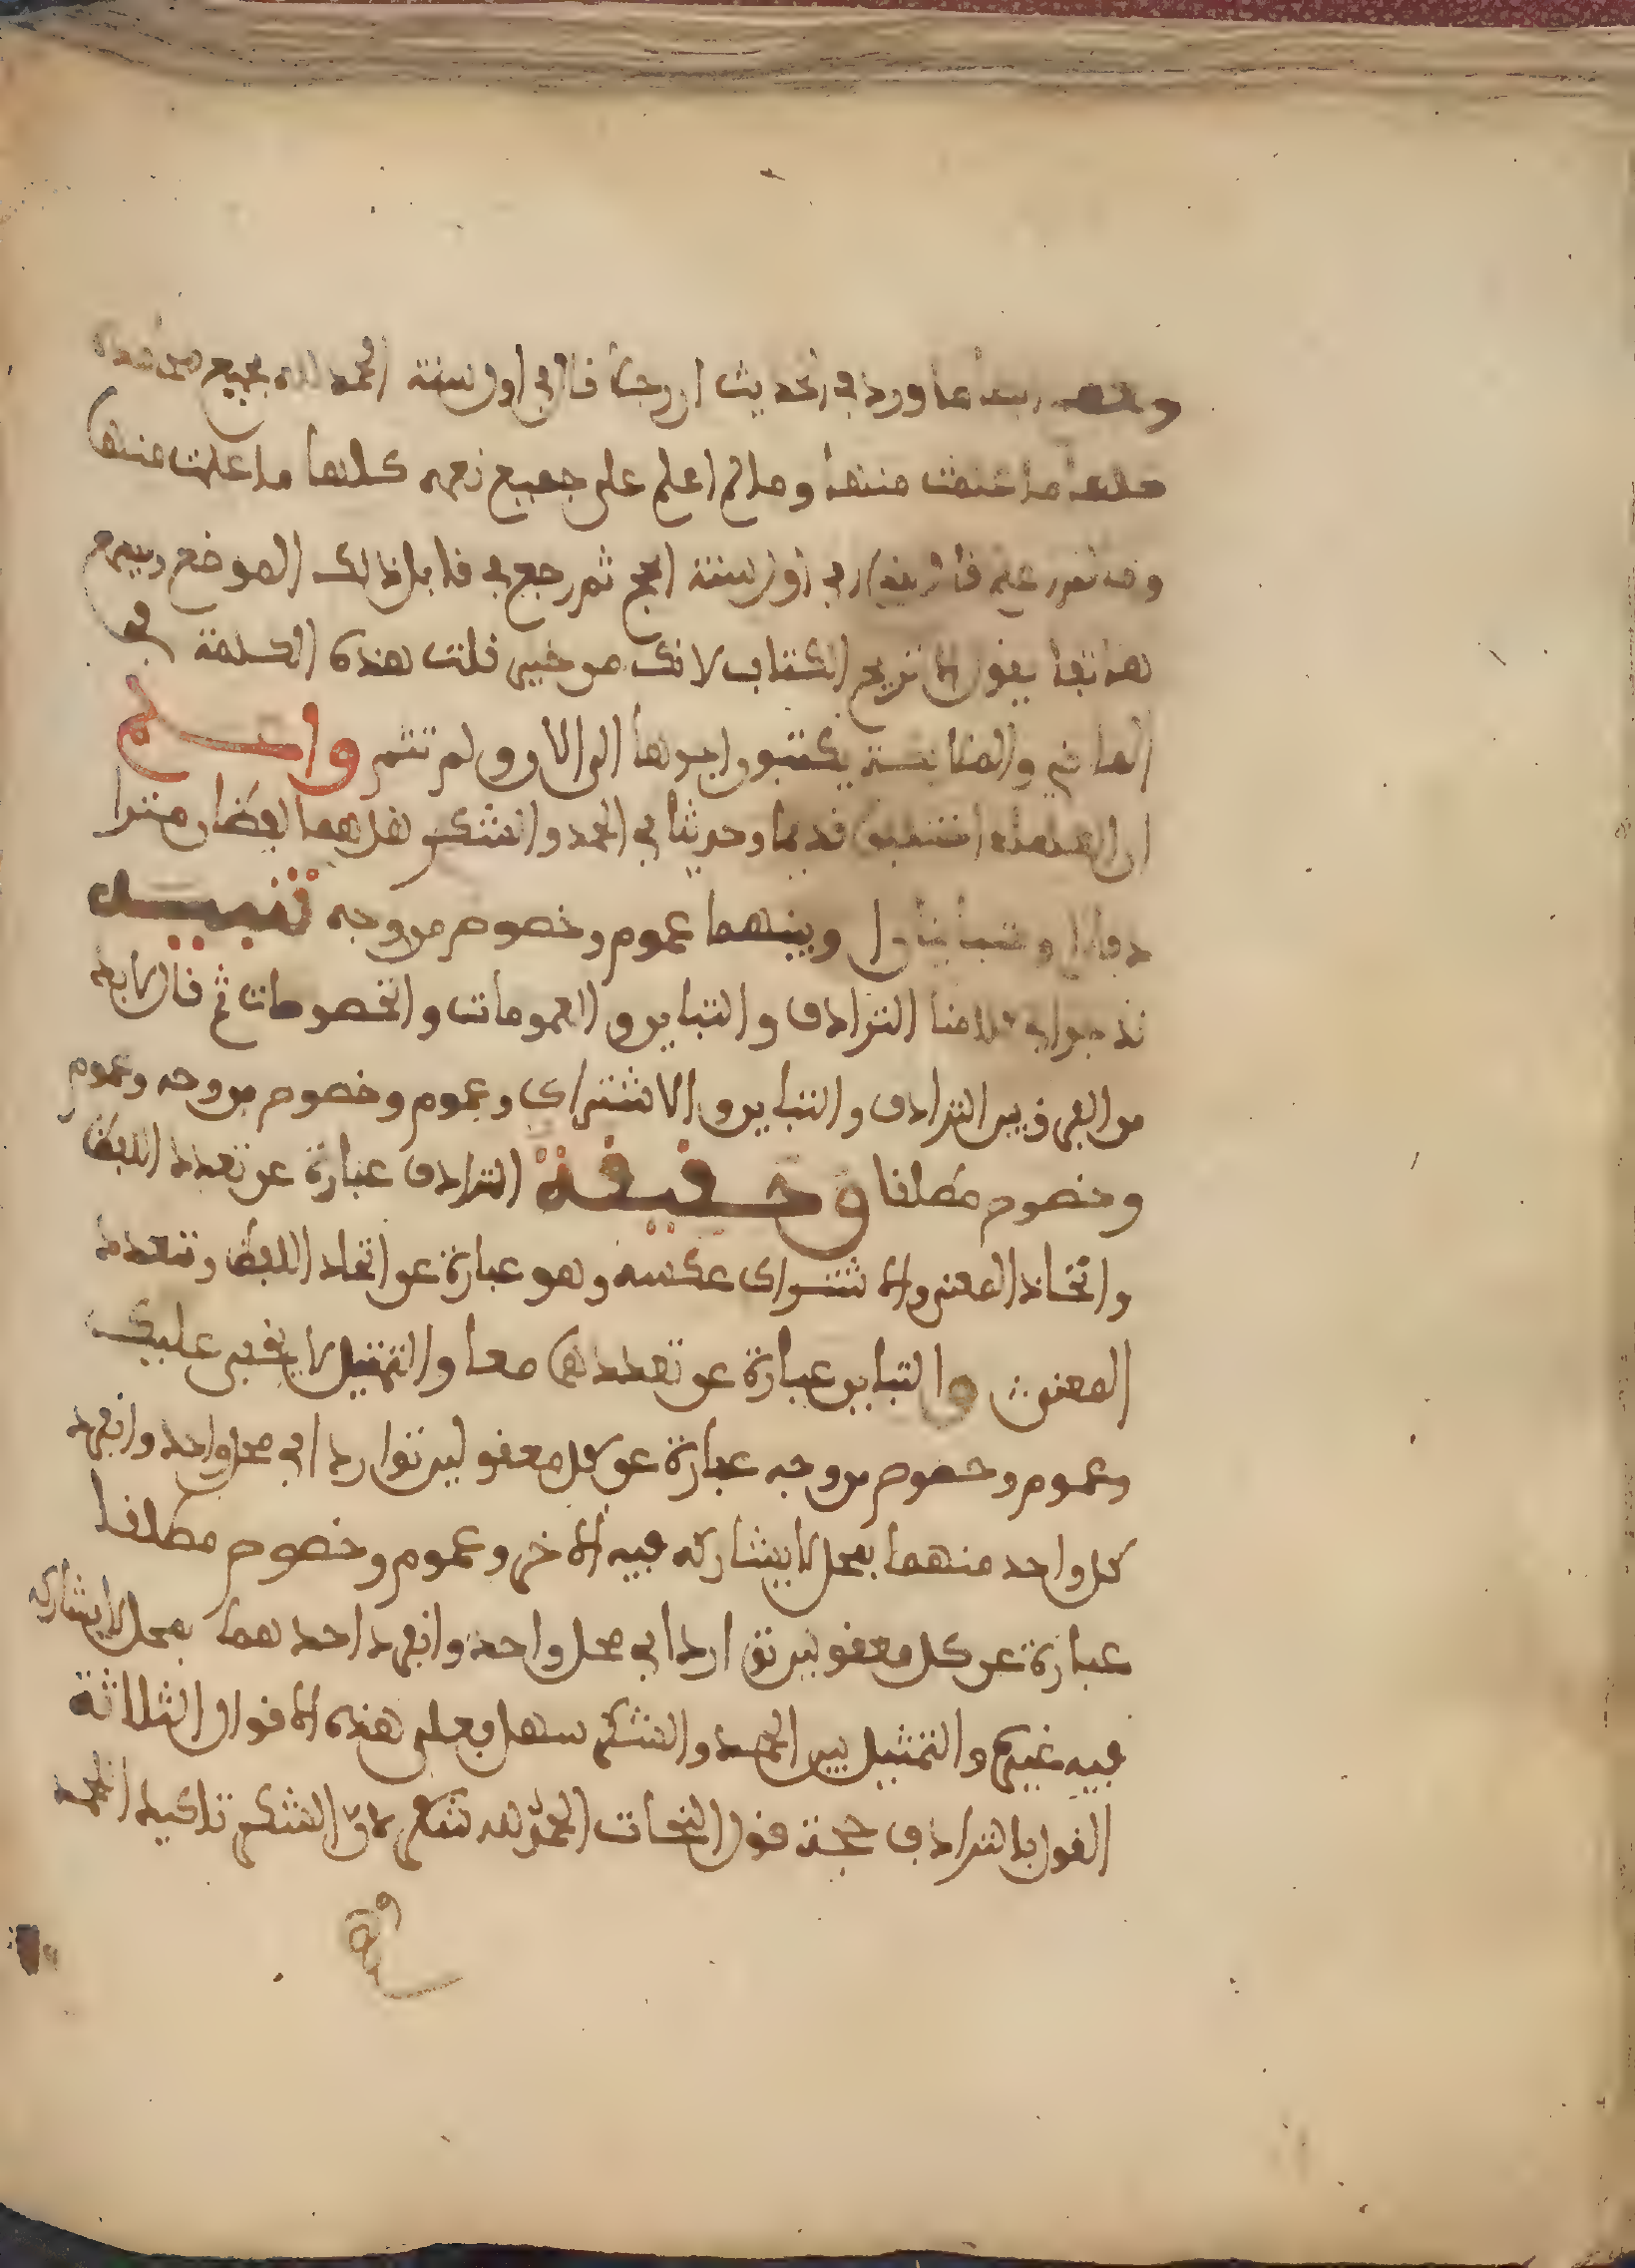 ما ورد في الحديث ان رجلا قال في اول سنة الحمد لله بجميع محامده
كلها ما علمت منها وما لم اعلم على جميع نعمه كلها ما علمت منها
وما لم في اول سنة الحج ثم رجع في قابل ذالك الموضع
هاتفا يقول الكتاب لانك من حين قلت هذه الكلمة في
العام والملائكة يكتبون اجرها الى الان ولم تتم واعـــلم
ان العلماء اختلفوا قديما وحديثا في الحمد والشكر هل هما لفظان مترا
دفان او متباينان او بينهما عموم وخصوص من وجه تنبيـــه
كلامنا الترادف والتباين والعمومات والخصوصات ثم قال لابد
من الفرق بين الترادف والتباين والاشتراك وعموم وخصوص من وجه وعموم
وخصوص مطلقا وحـقيقـة الترادف عبارة عن تعدد اللفظ
واتحاد المعنى والاشتراك عكسه وهو عبارة عن اتحاد اللفظ وتعدد
المعنى والتباين عبارة عن تعددهما معا والتمثيل لا يخفى عليك
وعموم وخصوص من وجه عبارة عن كل معقولين تواردا في محل واحد وانفرد
كل واحد منهما بمحل لا يشاركه فيه الاخر وعموم وخصوص مطلقا
عبارة عن كل معقولين تواردا في محل واحد وانفرد احدهما بمحل لا يشاركه
فيه غيره والتمثيل بين الحمد والشكر سهل فعلى هذه الاقوال الثلاثة
القول بالترادف حجة قول النحات الحمد لله شكرا لان الشكر تاكيد الحمد